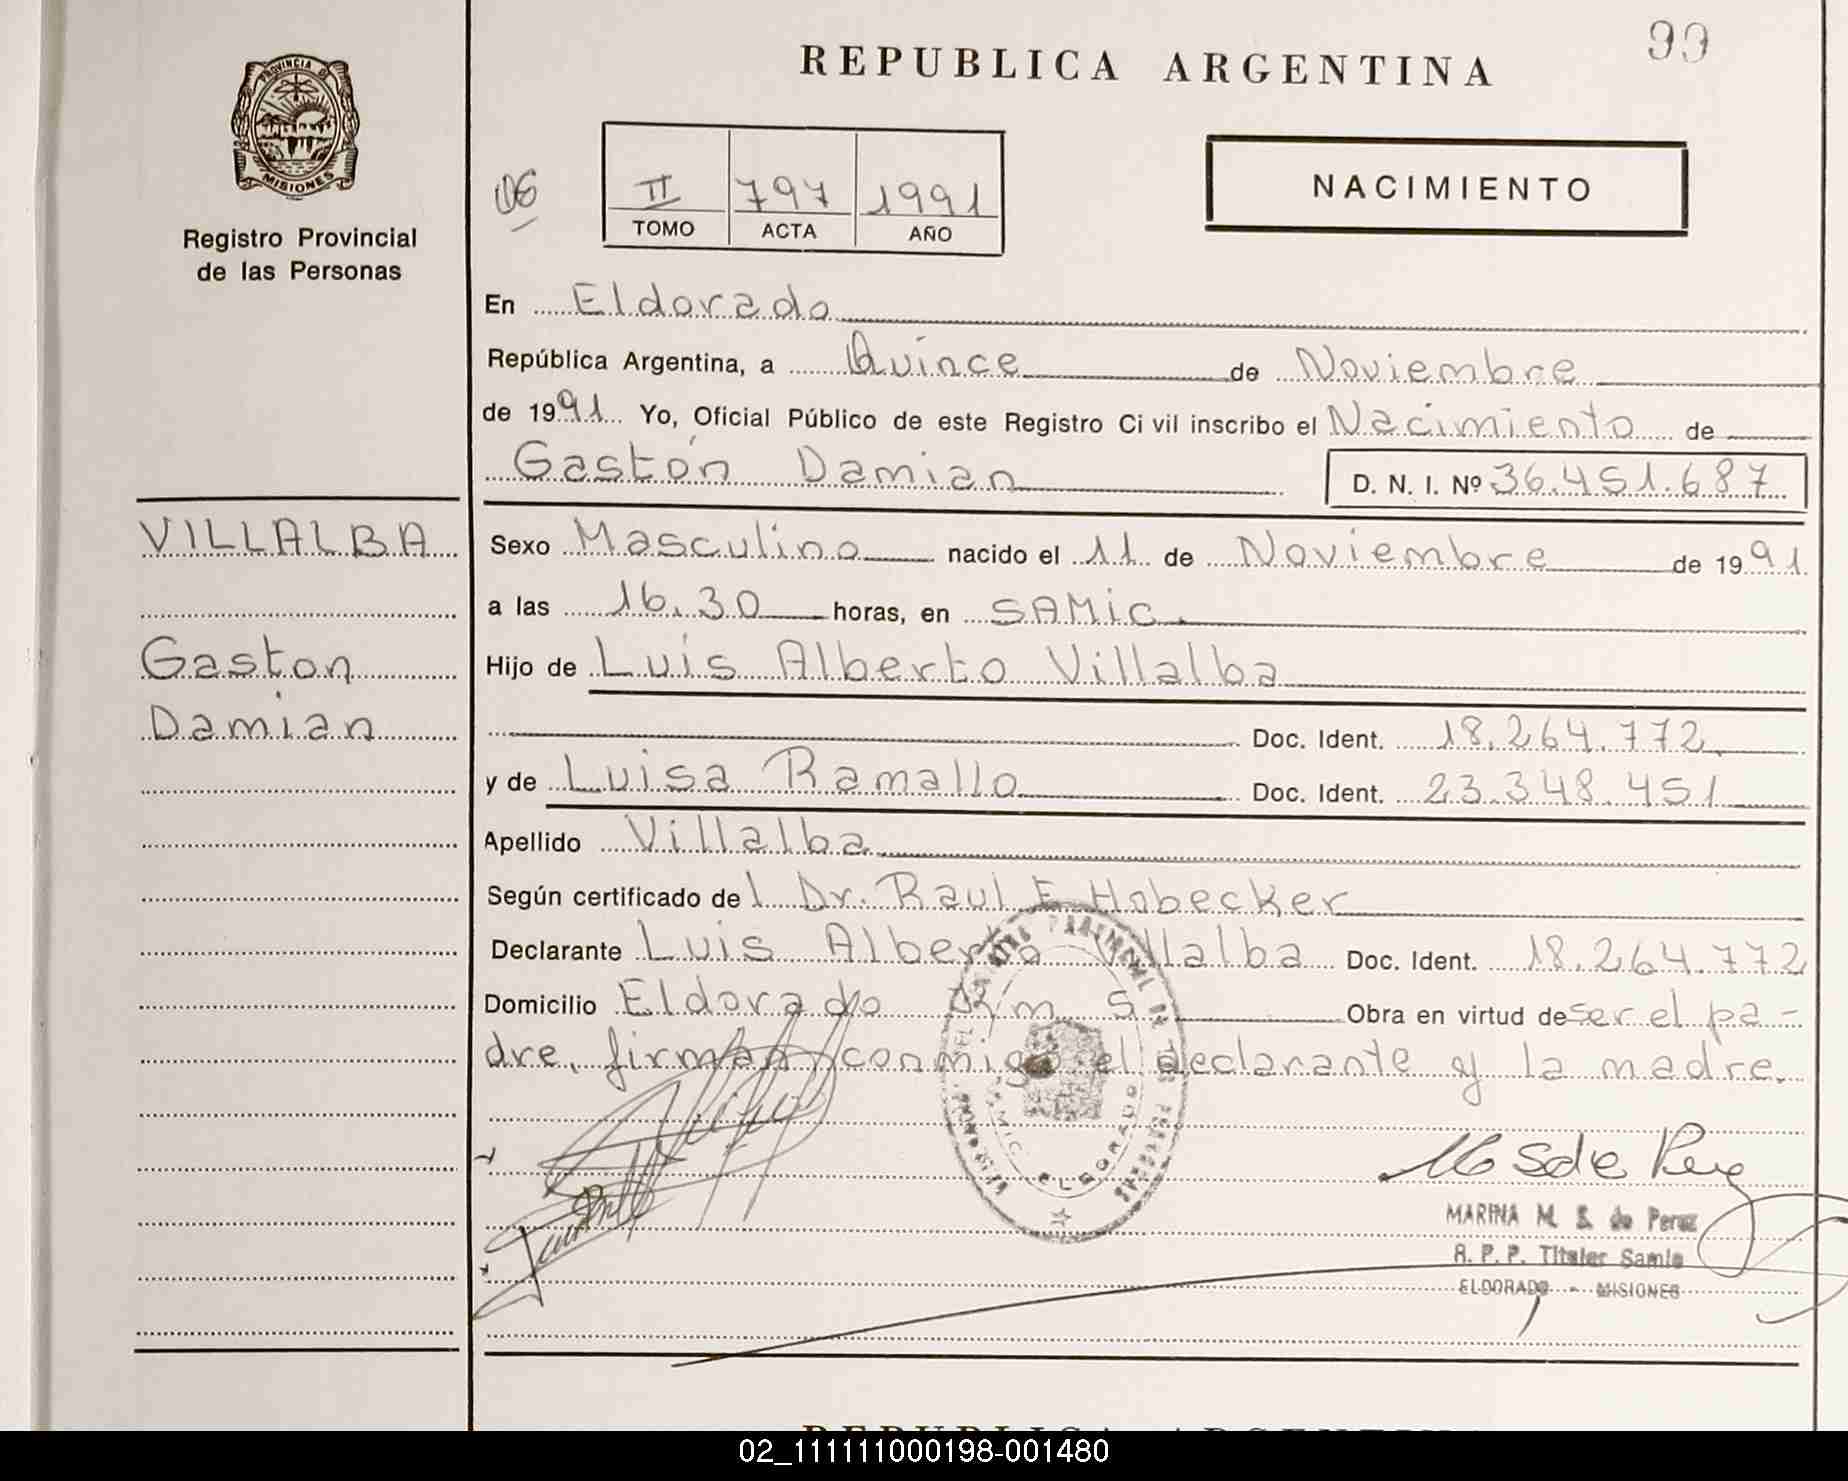 99
REPUBLICA ARGENTINA
PROVINCIA DE
MISIONES
Registro Provincial
de las Personas
06
II 797 1991
TOMO ACTA AÑO
NACIMIENTO
En Eldorado
República Argentina, a Quince de Noviembre
de 1991 Yo, Oficial Público de este Registro Civil inscribo el Nacimiento de
Gastón Damian D. N. I. Nº 36.451.687
VILLALBA
Gaston
Damian
Sexo Masculino nacido el 11 de Noviembre de 1991
a las 16.30 horas, en SAMIC.
Hijo de Luis Alberto Villalba
Doc. Ident. 18.264.772
y de Luisa Ramallo Doc. Ident. 23.348.451
Apellido Villalba
Según certificado del Dr. Raul E Hobecker
Declarante Luis Alberto Villalba Doc. Ident. 18.264.772
Domicilio Eldorado Km 5 Obra en virtud de ser el pa-
dre, firman conmigo el declarante y la madre.
SAMIC ELDORADO
MARINA M. S. de Perez
R. P. P. Titular Samic
ELDORADO - MISIONES
REPUBLICA ARGENTINA
02_111111000198-001480